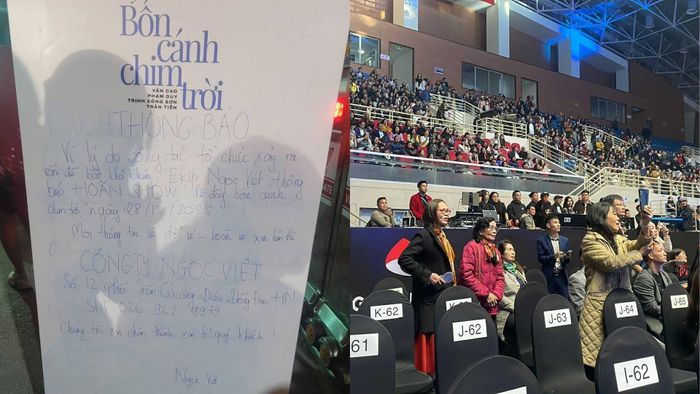 Bốn
cánh
chim
trời
VĂN CAO
PHẠM DUY
TRỊNH CÔNG SƠN
TRẦN TIẾN
THÔNG BÁO
Vì lý do công tác tổ chức xảy ra
vấn đề bất khả kháng Ekip Ngọc Việt thông
báo HOÃN SHOW Vở diễn bốn cánh
chim trời ngày 28/12/2025
Mọi thông tin về đổi vé - hoàn vé xin liên hệ
CÔNG TY NGỌC VIỆT
Số 12 phố Trần Quang Diệu Đống Đa HN
Chúng tôi xin chân thành xin lỗi quý khách!
Ngọc Việt
61
K-62
J-62
J-63
J-64
J-65
I-62